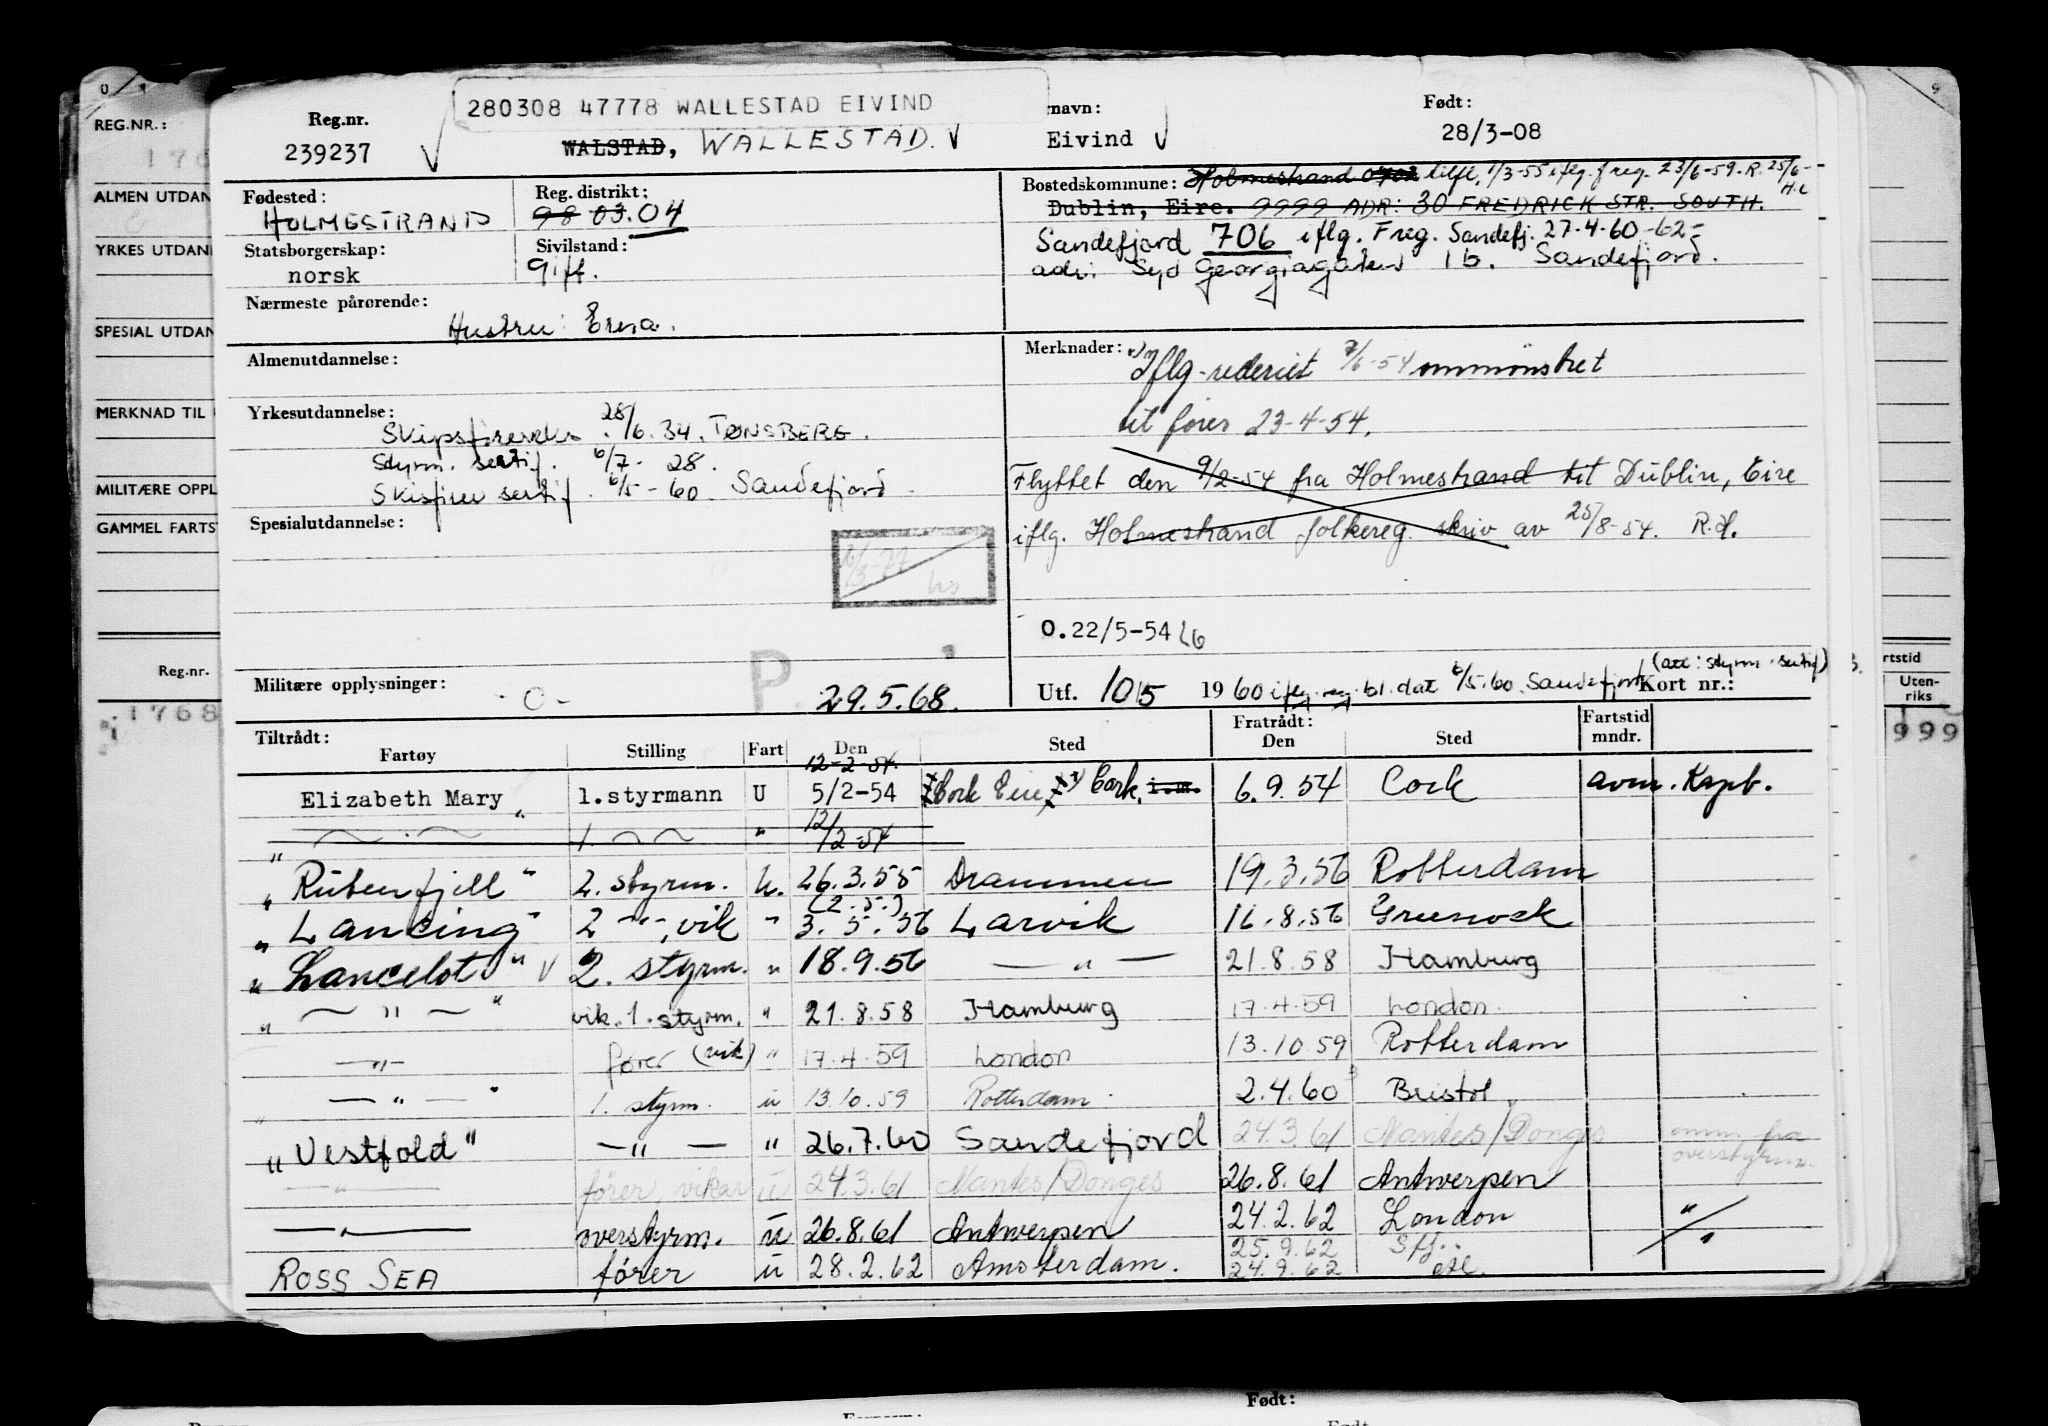 280308 47778 WALLESTAD EIVIND
Reg.nr.
239237
WALSTAD, WALLESTAD.
rnavn:
Eivind
Født:
28/3-08
Fødested:
HOLMESTRAND
Reg. distrikt:
98 03.04
Bostedskommune: Holmestrand 0702 tilfl. 1/3-55 iflg. freg. 23/6-59. R. 25/6-
H.L
Dublin, Eire. 9999 ADR: 30 FREDRICK STR. SOUTH.
Statsborgerskap:
norsk
Sivilstand:
gift.
Sandefjord 706 iflg. Freg. Sandefj. 27-4-60-62-
adr: Syd Georgiagaten 1b. Sandefjord.
Nærmeste pårørende:
Hustru: Erna.
Almenutdannelse:
Merknader: Iflg. rederiet 7/6-54 ommønstret
til fører 23-4-54.
Yrkesutdannelse:
28/6.34. TØNSBERG.
Styrm. sertif. 6/7-28.
sertif. 6/5-60. Sandefjord.
Flyttet den 9/2-54 fra Holmestrand til Dublin, Eire
iflg. Holmestrand folkereg. skriv av 25/8-54. R.H.
Spesialutdannelse:
O.22/5-54
Militære opplysninger:
-0-
P
29.5.68.
Utf. 1015 1960 iflg. reg.bl. dat 6/5.60. Sandefjord
(att: styrm. sertif)
Kort nr.:
Tiltrådt:
Fartøy Stilling Fart Den Sted
Fratrådt:
Den Sted
Fartstid
mndr.
12-2-54.
Elizabeth Mary 1.styrmann U 5/2-54 Cork Eire Cork, 6.9.54 Cork avm. Kapt.
" 1. " 12/2-54
"Rubenfjell" 2. styrm. U. 26.3.55 Drammen 19.3.56 Rotterdam
(2.5.)
"Lancing" 2 -"-, vik " 3.5.56 Larvik 16.8.56 Greenock
"Lancelot" 2. styrm. " 18.9.56 —"— 21.8.58 Hamburg
" —"— " vik. 1. styrm. " 21.8.58 Hamburg 17.4.59 London.
—"— fører (vik) " 17.4.59 London 13.10.59 Rotterdam
" —"— " 1. styrm. u 13.10.59 Rotterdam. 2.4.60 Bristol
"Vestfold" —"— " 26.7.60 Sandefjord 24.3.61 Nantes/Donges omm. fra
overstyrm.
—"— fører, vikar u 24.3.61 Nantes/Donges 26.8.61 Antwerpen
—"— overstyrm. u 26.8.61 Antwerpen 24.2.62 London "
ROSS SEA fører u 28.2.62 Amsterdam. 25.9.62 Sfj.
24.9.62
REG.NR.:
ALMEN UTDAN
YRKES UTDAN
SPESIAL UTDAN
MERKNAD TIL
MILITÆRE OPPL
GAMMEL FARTS
Reg.nr.
1768
rtstid
Uten-
riks
999
Født: